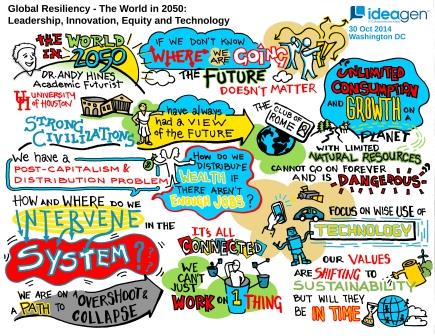 Global Resiliency - The World in 2050:
Leadership, Innovation, Equity and Technology
ideagen
30 Oct 2014
Washington DC
THE WORLD
IN 2050
DR ANDY HINES
Academic Futurist
UH UNIVERSITY
of HOUSTON
IF WE DON'T KNOW
"WHERE" WE ARE GOING
THE FUTURE
DOESN'T MATTER
STRONG
CIVILIZATIONS
have always
had a VIEW
of the FUTURE
THE CLUB OF
ROME
"UNLIMITED
CONSUMPTION
AND GROWTH ON
A PLANET
WITH LIMITED
NATURAL RESOURCES
CANNOT GO ON FOREVER
AND IS DANGEROUS"
we have a
POST-CAPITALISM &
DISTRIBUTION PROBLEM
HOW DO WE
DISTRIBUTE
WEALTH IF
THERE AREN'T
ENOUGH JOBS?
HOW AND WHERE DO WE
INTERVENE IN THE
SYSTEM??
IT'S ALL
CONNECTED
WE
CAN'T
JUST
WORK ON 1 THING
FOCUS ON WISE USE OF
TECHNOLOGY
OUR VALUES
ARE SHIFTING TO
SUSTAINABILITY
BUT WILL THEY
BE IN TIME
WE ARE ON
A PATH TO
"OVERSHOOT &
COLLAPSE